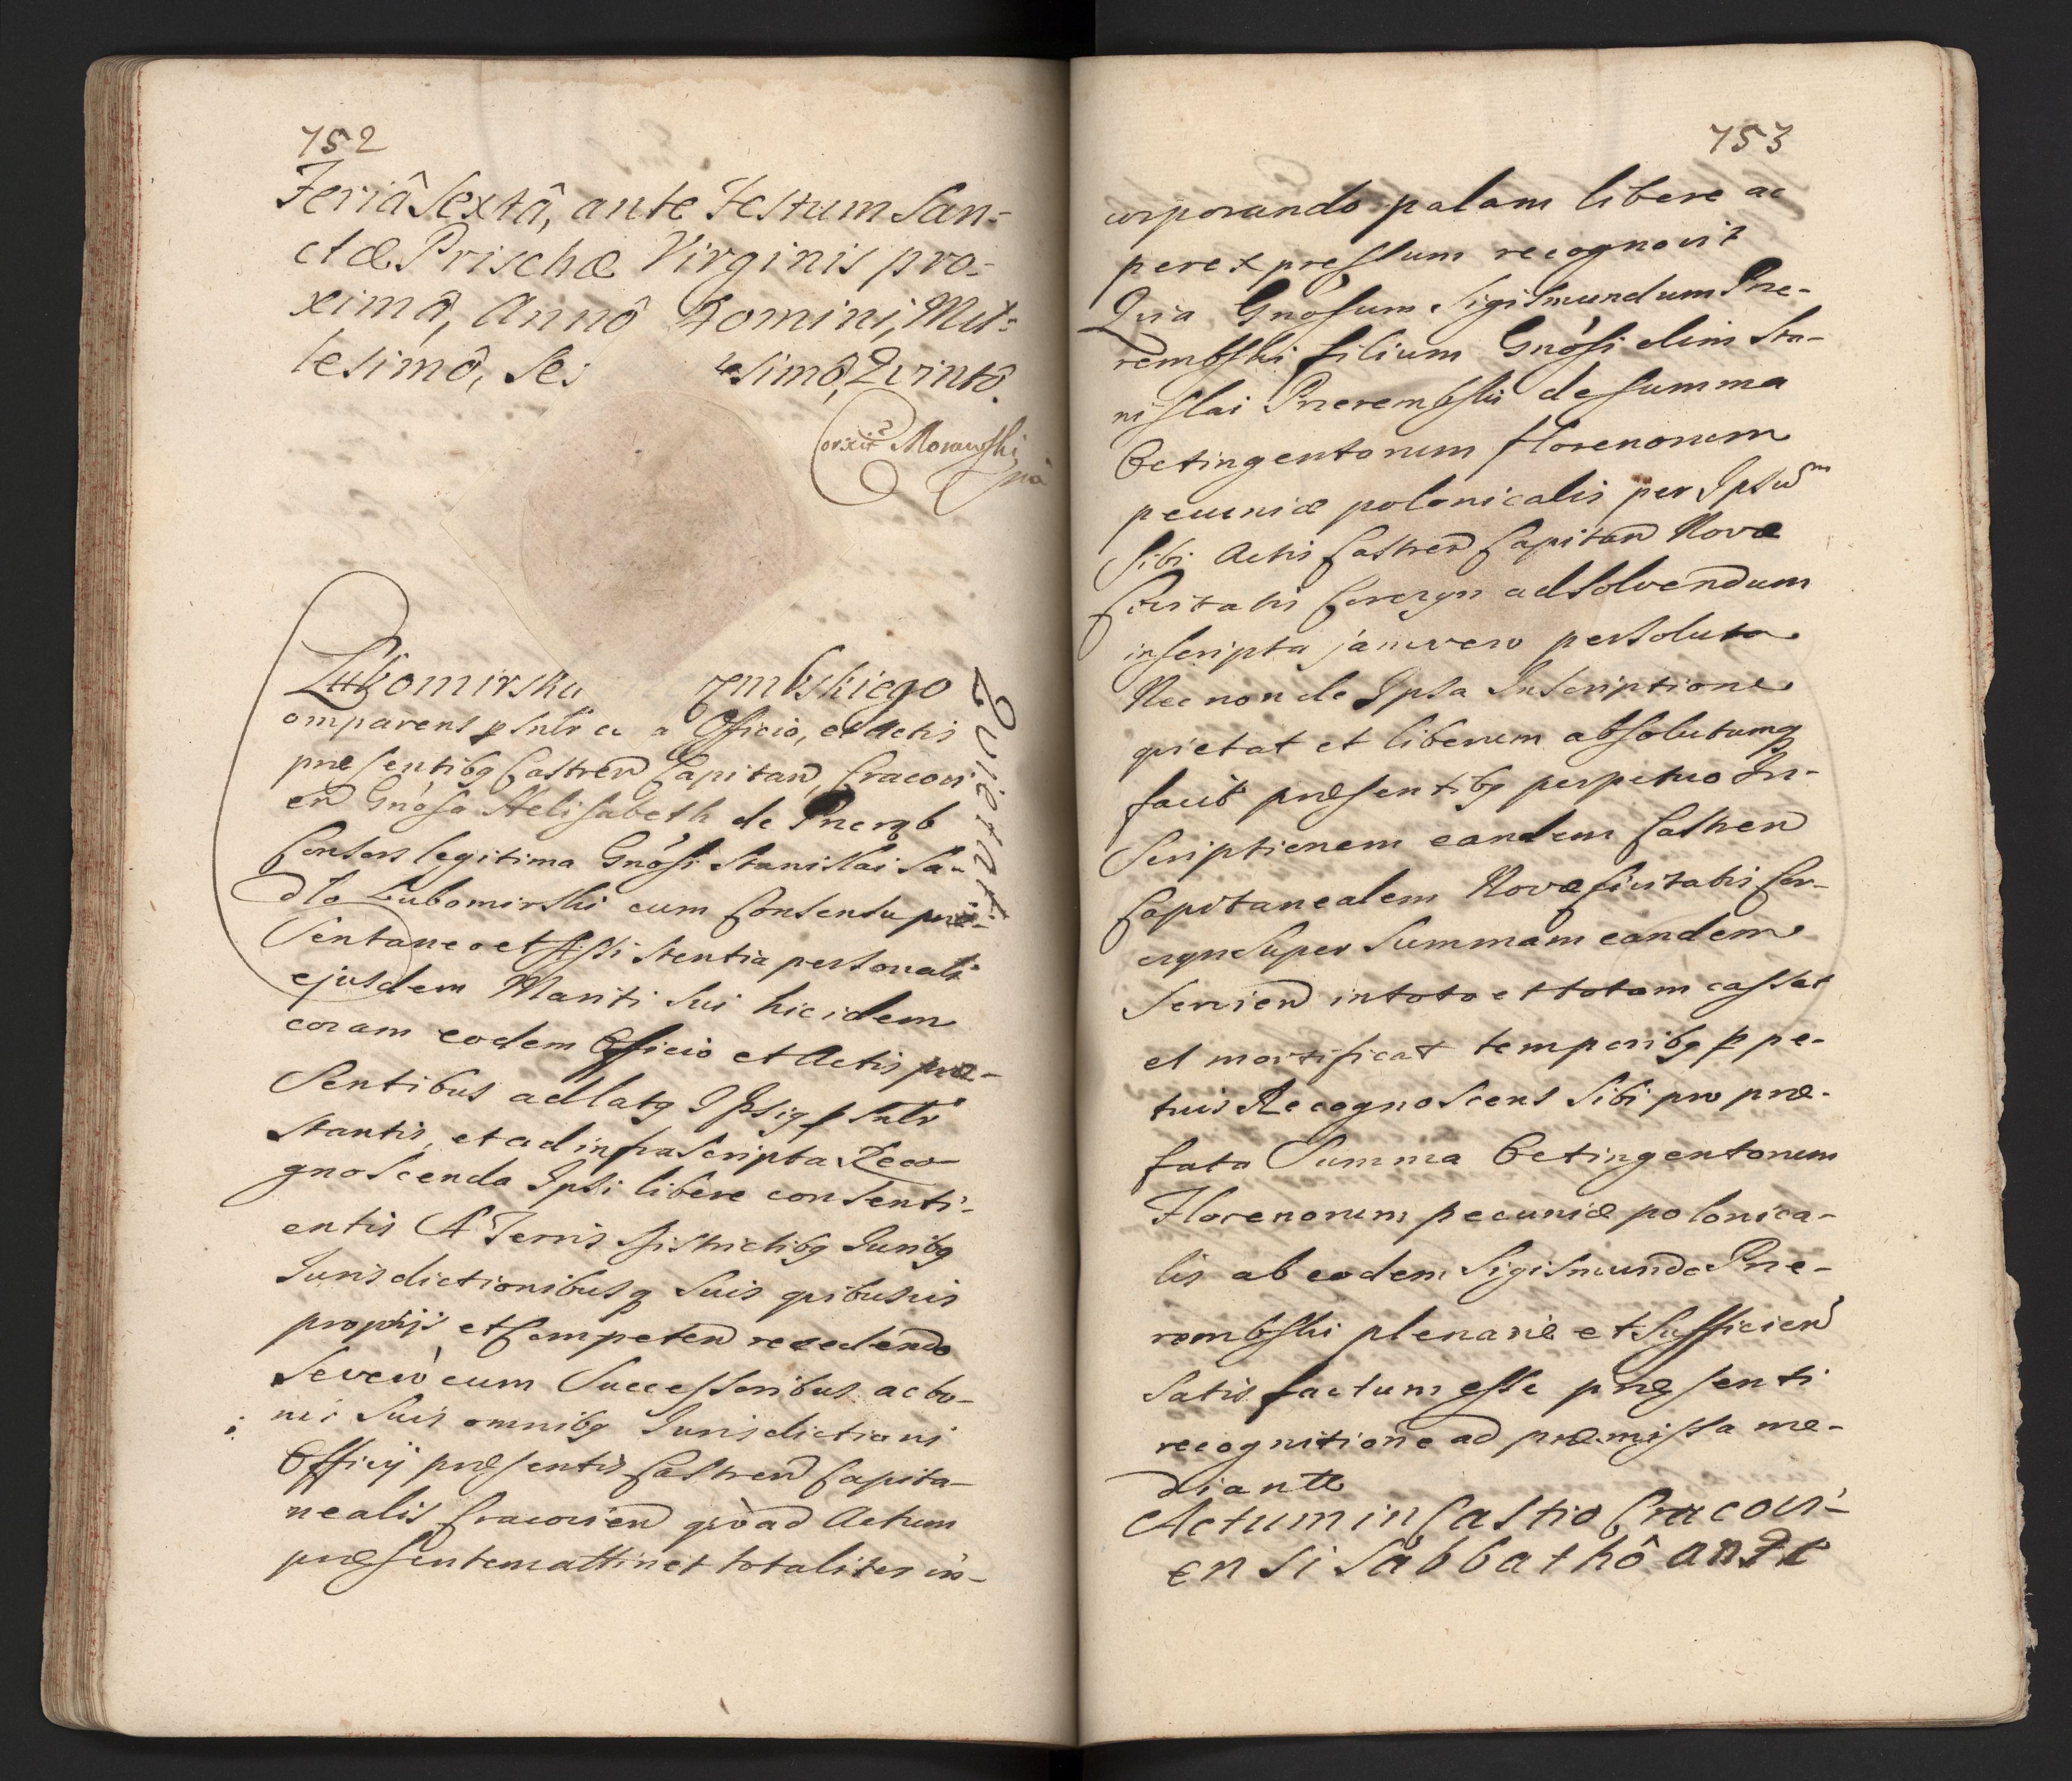 752
Feriâ Sextâ, ante Festum San-
ctæ Prischæ Virginis pro-
ximâ, Annô Domini, Mil-
lesimô, Se simô, Qvintô.
Morawski
Lubomirska zembskiego
Qvietat
omparens psntr a Officio, et Actis
præsentibq Castren Capitan, Cracovi
en Gnósa Helisabeth de Prerąb
Consors legitima Gnósi Stanislai Sa-
dlo Lubomirski cum Consensu præ-
sentaneo et Assistentia personali
ejusdem Mariti sui hic idem
coram eodem Officio et Actis præ-
sentibus ad latq Ipsiq psntr
stantis, et ad infrascripta Reco-
gnoscenda Ipsi libere consenti-
entis A Terris Districtibq Juribq
Jurisdictionibusq suis qvibusvis
proprijs et Competen recedendo
Severò cum Successoribus ac bo-
nis suis omnibq Jurisdictioni
Officij præsentis Castren Capita-
nealis Cracovien qvò ad Actum
præsentem attinet totaliter in-
753
corporando palam libere ac
per expressum recognovit
Qvia Gnósum Sigismundum Prze-
rembski filium Gnósi olim Sta-
nislai Przerembski de summa
Octingentorum florenorum
pecuniæ polonicalis per Ipsum
sibi Actis Castren Capitan Novæ
Civitatis Corczyn ad solvendum
inscripta jam vero persoluta
Nec non de Ipsa Inscriptione
qvietat et liberum absolutumq
facit præsentibq perpetuo In-
scriptionem eandem Castren
Capitanealem Novæ Civitatis Cor-
czyn super Summam eandem
servien in toto et totam cassat
et mortificat temporibq ppe-
tuis Recognoscens sibi pro præ-
fata Summa Octingentorum
Florenorum pecuniæ polonica-
lis ab eodem Sigismundo Prze-
rombski plenarie et sufficien
satis factum esse præsenti
recognitione ad præmissa me-
diante
Actum in Castro Cracovi-
ensi Sabbathô ante